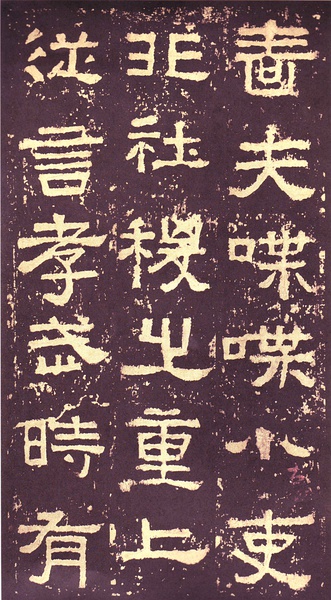 嗇夫喋喋小吏
非社稷之重上
從言孝武時有